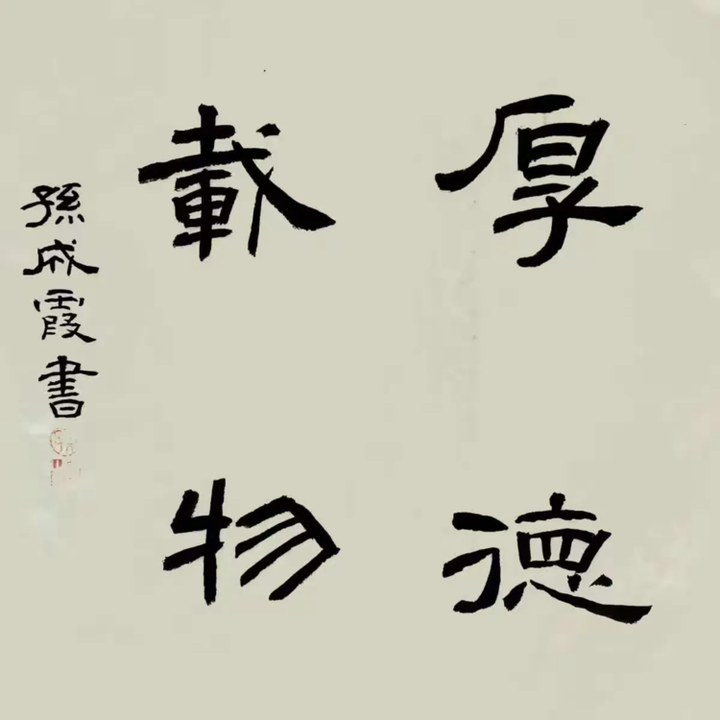 厚德
載物
孫成霞書